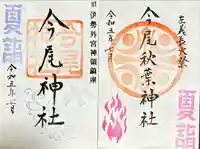 夏詣
旧伊勢外宮神領鎮座
今尾神社
令和五年七月
主義長大祭
今尾秋葉神社
令和五年七月
夏詣